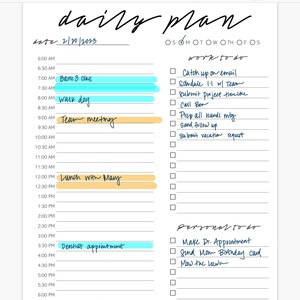 daily plan
date 2/20/2023
OS OM OT OW OTH OF OS
6:00 AM
6:30 AM
7:00 AM Barre 3 class
7:30 AM
8:00 AM Walk dog
8:30 AM
9:00 AM Team meeting
9:30 AM
10:00 AM
10:30 AM
11:00 AM
11:30 AM
12:00 PM Lunch with Mary
12:30 PM
1:00 PM
1:30 PM
2:00 PM
2:30 PM
3:00 PM
3:30 PM Dentist appointment
4:00 PM
4:30 PM
5:00 PM
5:30 PM
work to do
Catch up on email
Schedule 1:1 w/ Team
Submit project timeline
Call Bob
Prep all hands mtg
Send follow up
Submit vacation request
personal to do
Make Dr. Appointment
Send Mom Birthday card
Mow the lawn